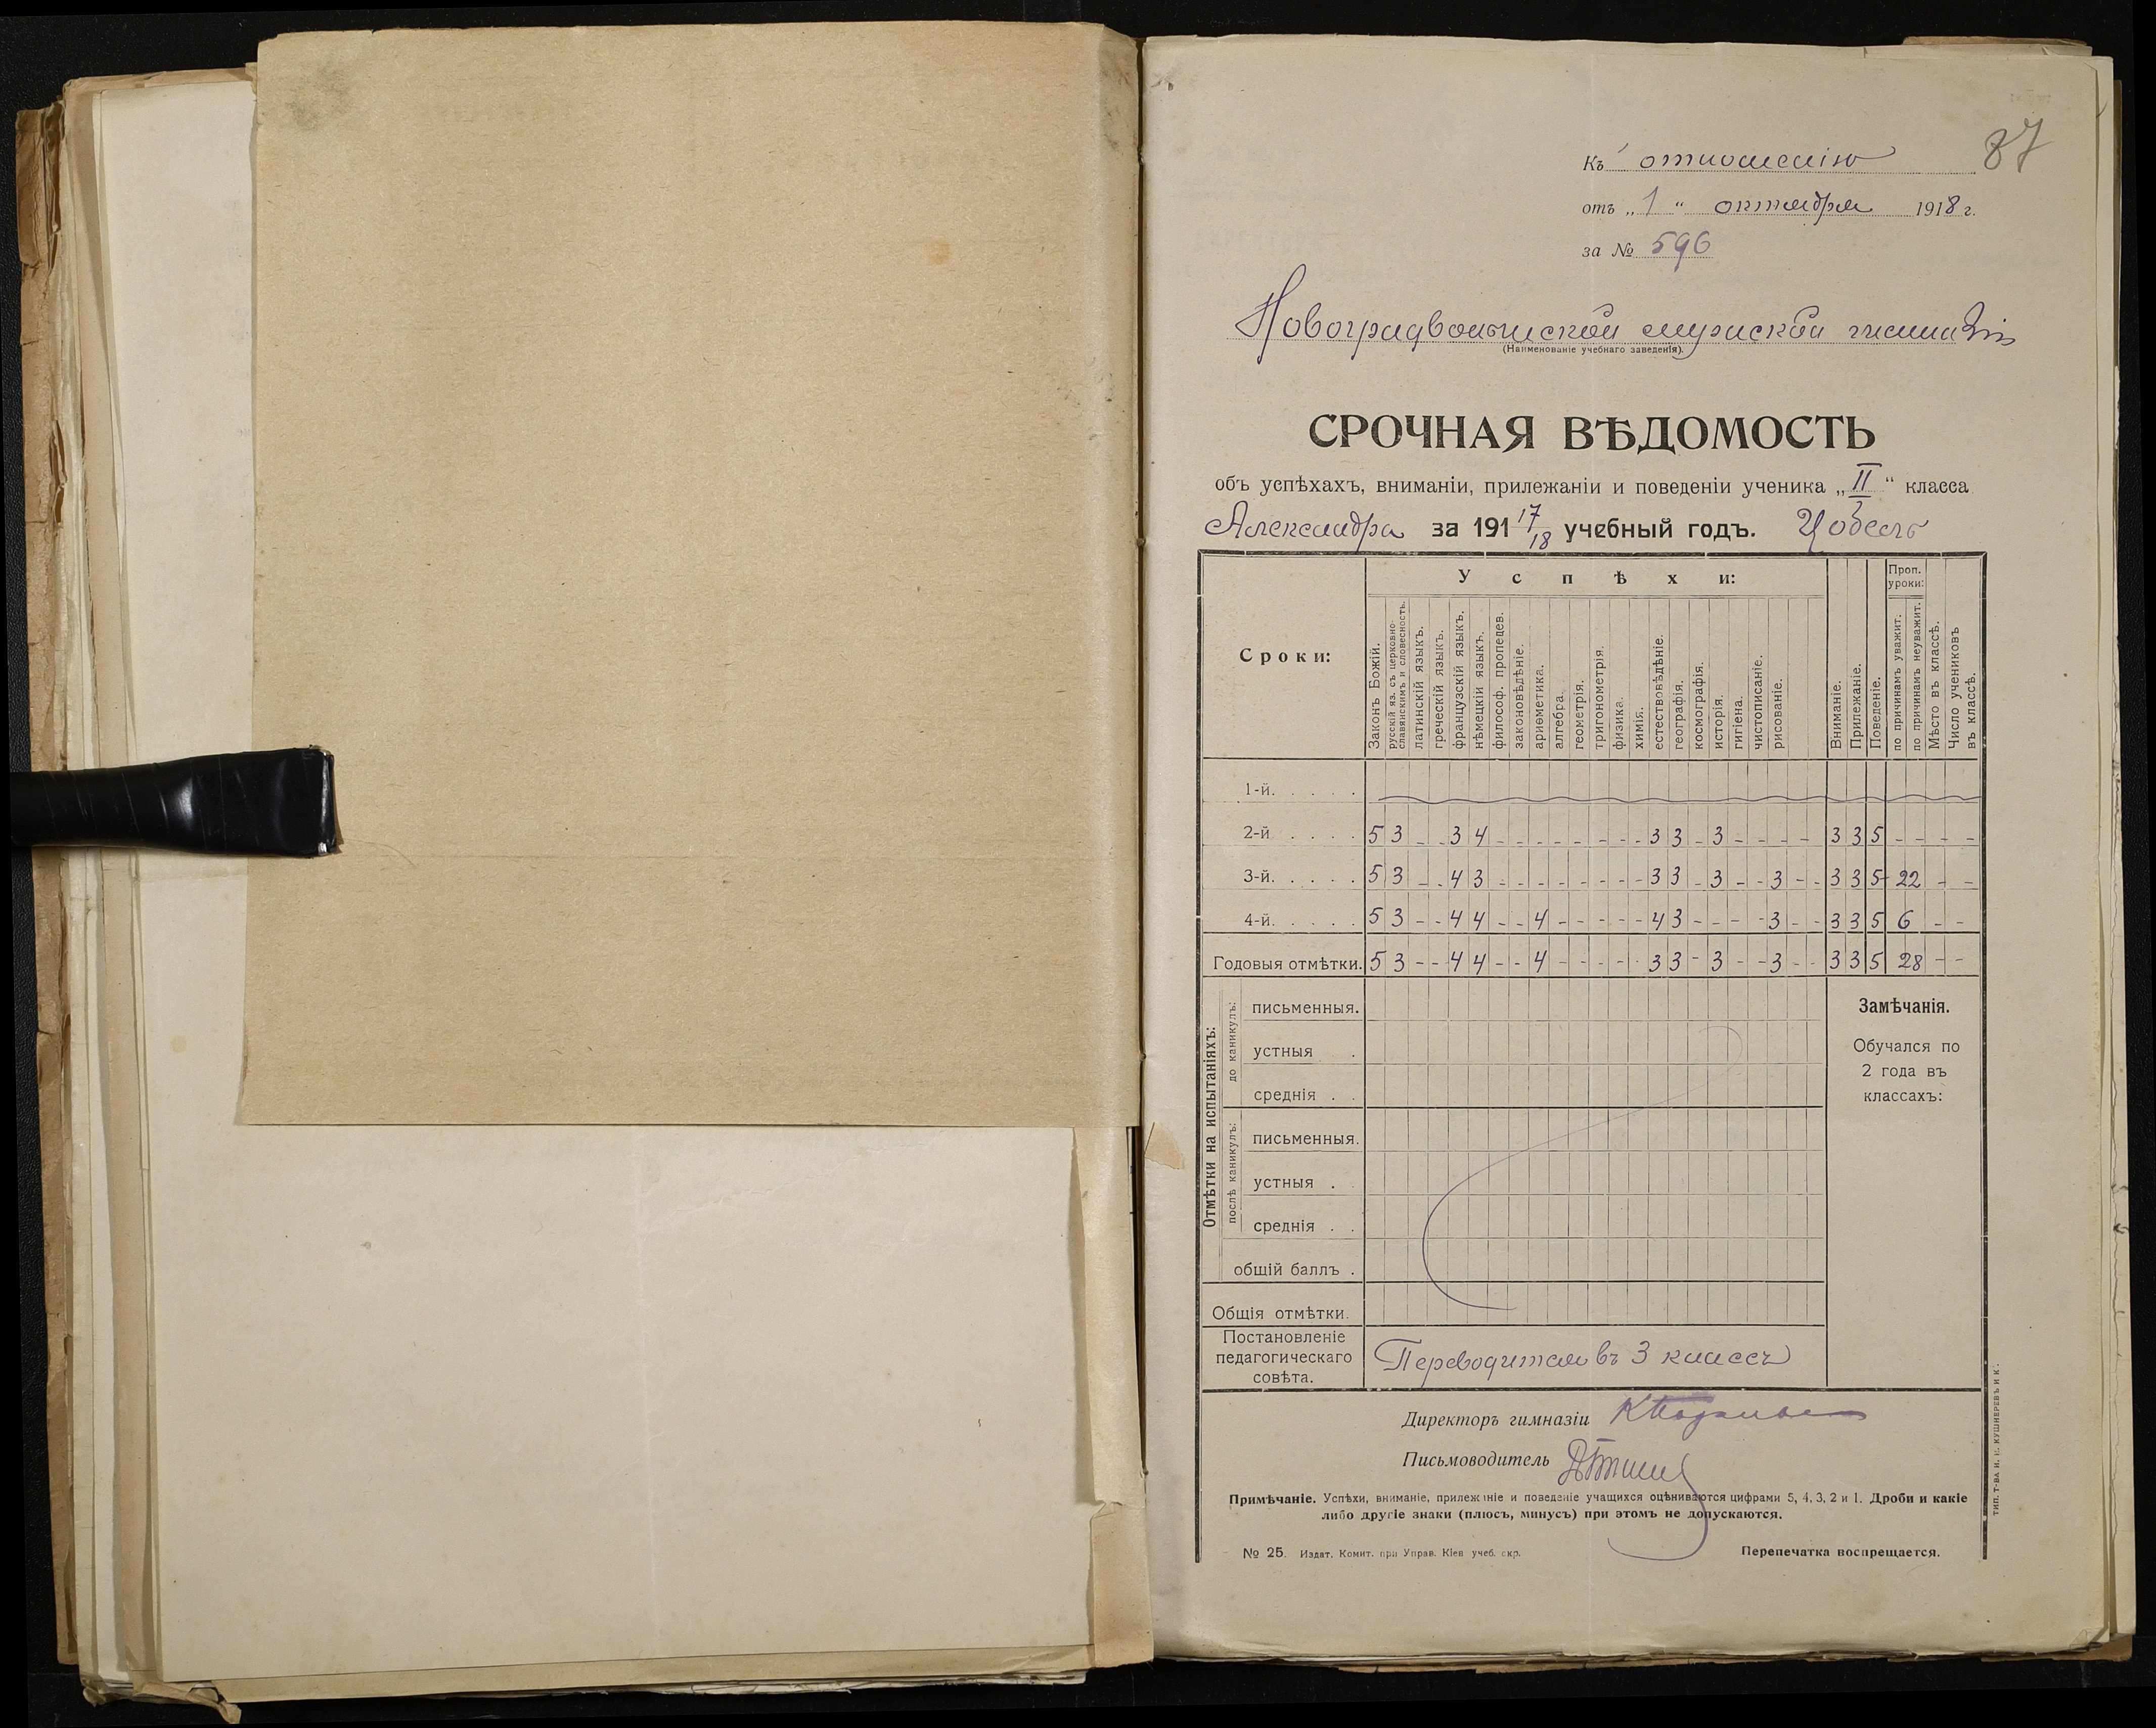 87
Къ отношенію
отъ „1“ октября 1918 г.
за № 596
Новоградволынской мужской гимназіи
(Наименованіе учебнаго заведенія).
СРОЧНАЯ ВѢДОМОСТЬ
объ успѣхахъ, вниманіи, прилежаніи и поведеніи ученика „II“ класса
Александра за 191 17/18 учебный годъ. Цобель
Сроки:
Успѣхи:
Законъ Божій.
русскій яз. съ церковно-славянскимъ и словесность.
латинскій языкъ.
греческій языкъ.
французскій языкъ.
нѣмецкій языкъ.
философ. пропедев.
законовѣдѣніе.
ариѳметика.
алгебра.
геометрія.
тригонометрія.
физика.
химія.
естествовѣдѣніе.
географія.
космографія.
исторія.
гигіена.
чистописаніе.
рисованіе.
Вниманіе.
Прилежаніе.
Поведеніе.
Проп. уроки:
по причинамъ уважит.
по причинамъ неуважит.
Мѣсто въ классѣ.
Число учениковъ въ классѣ.
1-й. . . . .
2-й . . . . 5 3 - - 3 4 - - - - - - - - 3 3 - 3 - - - - 3 3 5 - - - -
3-й. . . . . 5 3 - - 4 3 - - - - - - - - 3 3 - 3 - - 3 - - 3 3 5 - 22 - -
4-й. . . . . 5 3 - - 4 4 - - 4 - - - - - 4 3 - - - - 3 - - 3 3 5 6 - -
Годовыя отмѣтки. 5 3 - - 4 4 - - 4 - - - - - 3 3 - 3 - - 3 - - 3 3 5 28 - -
Отмѣтки на испытаніяхъ:
до каникулъ:
письменныя.
устныя .
среднія . .
послѣ каникулъ:
письменныя.
устныя . .
среднія . .
общій баллъ .
Общія отмѣтки.
Замѣчанія.
Обучался по
2 года въ
классахъ:
Постановленіе
педагогическаго
совѣта.
Переводится въ 3 классъ
Директоръ гимназіи
Письмоводитель
Примѣчаніе. Успѣхи, вниманіе, прилежаніе и поведеніе учащихся оцѣниваются цифрами 5, 4, 3, 2 и 1. Дроби и какіе
либо другіе знаки (плюсъ, минусъ) при этомъ не допускаются.
№ 25. Издат. Комит. при Управ. Кіев. учеб. окр. Перепечатка воспрещается.
ТИП. Т-ВА И. Н. КУШНЕРЕВЪ И К.